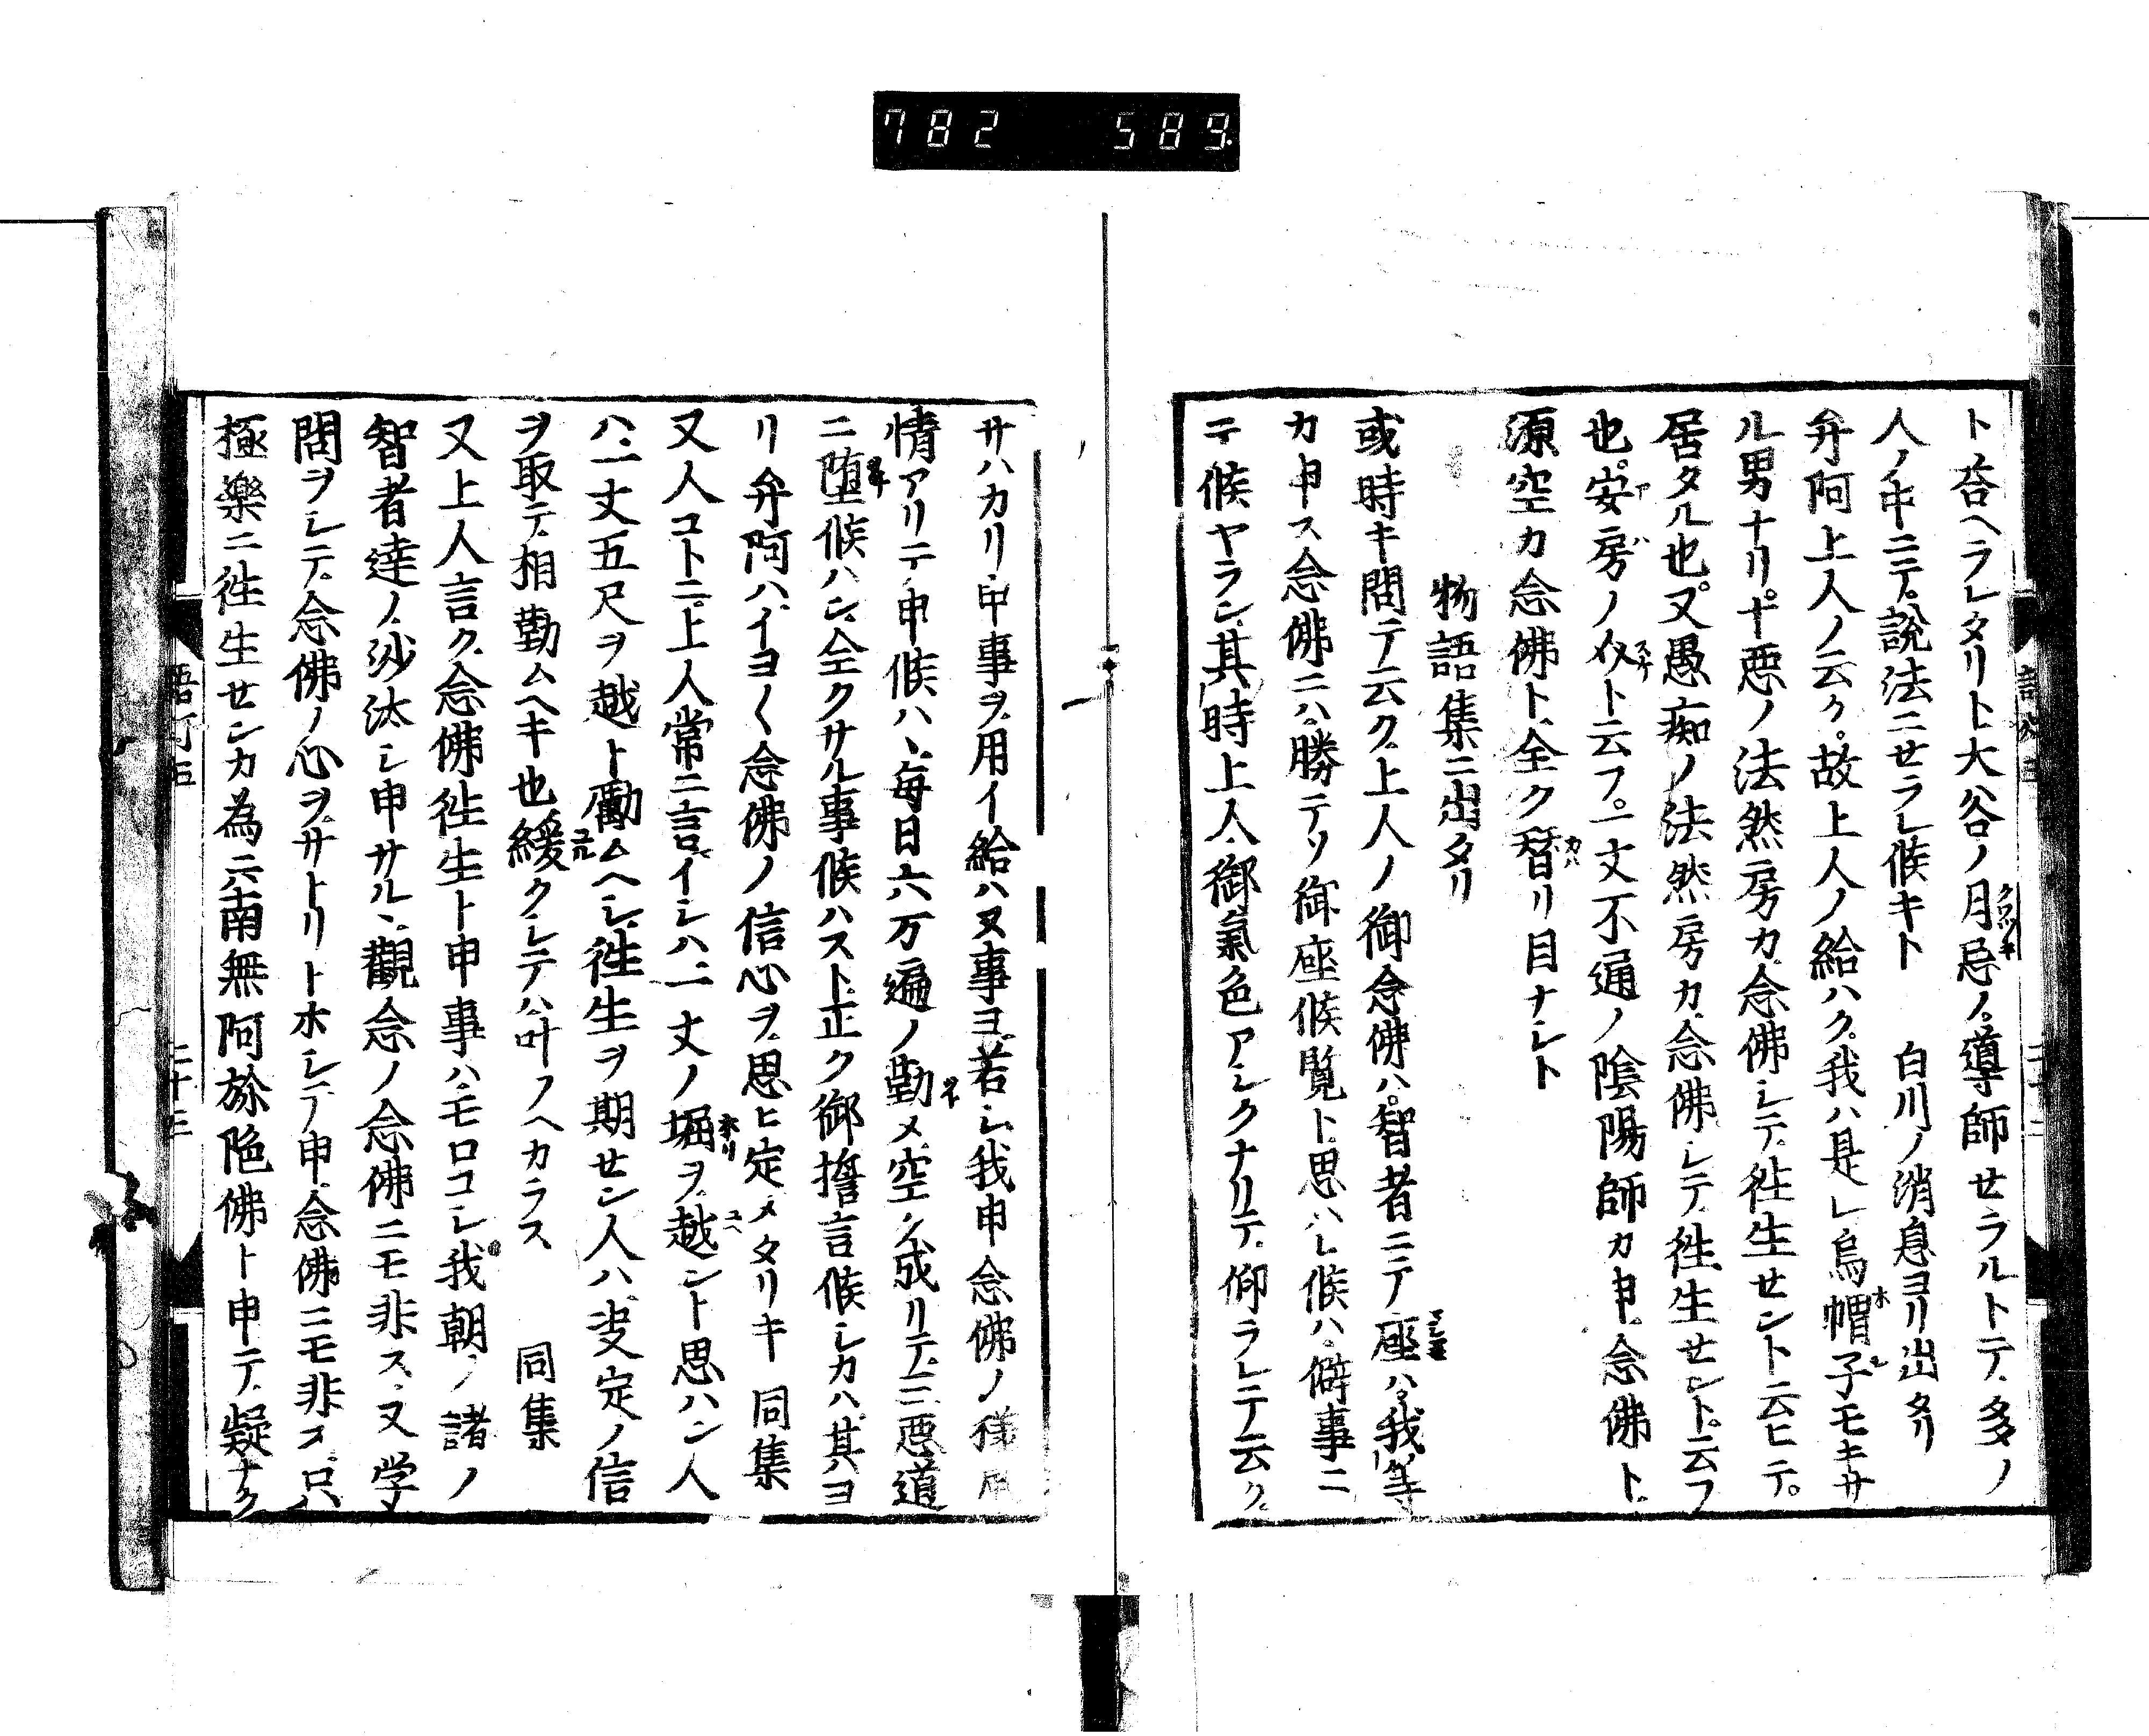 782 589
ト荅ヘラレタリト大谷ノ月忌ノ導師セラルトテ多ノ
人ノ中ニテ說法ニセラレ候キト　白川ノ消息ヨリ出タリ
弁阿上人ノ云ク故上人ノ給ハク我ハ是レ烏帽子モキサ
ル男ナリ十悪ノ法然房カ念佛シテ往生セント云ヒテ
居タル也又愚痴ノ法然房カ念佛シテ往生セント云フ
也安房ノ介ト云フ一文不通ノ陰陽師カ申念佛ト
源空カ念佛ト全ク替リ目ナシト
物語集ニ出タリ
或時キ問テ云ク上人ノ御念佛ハ智者ニテ座ハ我等
カ申ス念佛ニハ勝テソ御座候覧ト思ハレ候ハ僻事ニ
テ候ヤラン其時上人御氣色アシクナリテ仰ラレテ云ク
サハカリ申事ヲ用イ給ハヌ事ヨ若シ我申念佛ノ様
情アリテ申候ハヽ毎日六万遍ノ勤メ空ク成リテ三悪道
ニ堕候ハン全クサル事候ハスト正ク御誓言候シカハ其ヨ
リ弁阿ハイヨ〱念佛ノ信心ヲ思ヒ定メタリキ　同集
又人コトニ上人常ニ言イシハ一丈ノ堀ヲ越ント思ハン人
ハ一丈五尺ヲ越ト勵ムヘシ往生ヲ期セン人ハ决定ノ信
ヲ取テ相勤ムヘキ也緩クシテハ叶フヘカラス　同集
又上人言ク念佛往生ト申事ハモロコシ我朝ノ諸ノ
智者達ノ沙汰シ申サルヽ觀念ノ念佛ニモ非ス又学
問ヲシテ念佛ノ心ヲサトリトホシテ申念佛ニモ非ス只
極樂ニ往生センカ為ニ南無阿旀陁佛ト申テ疑ナク
二十三